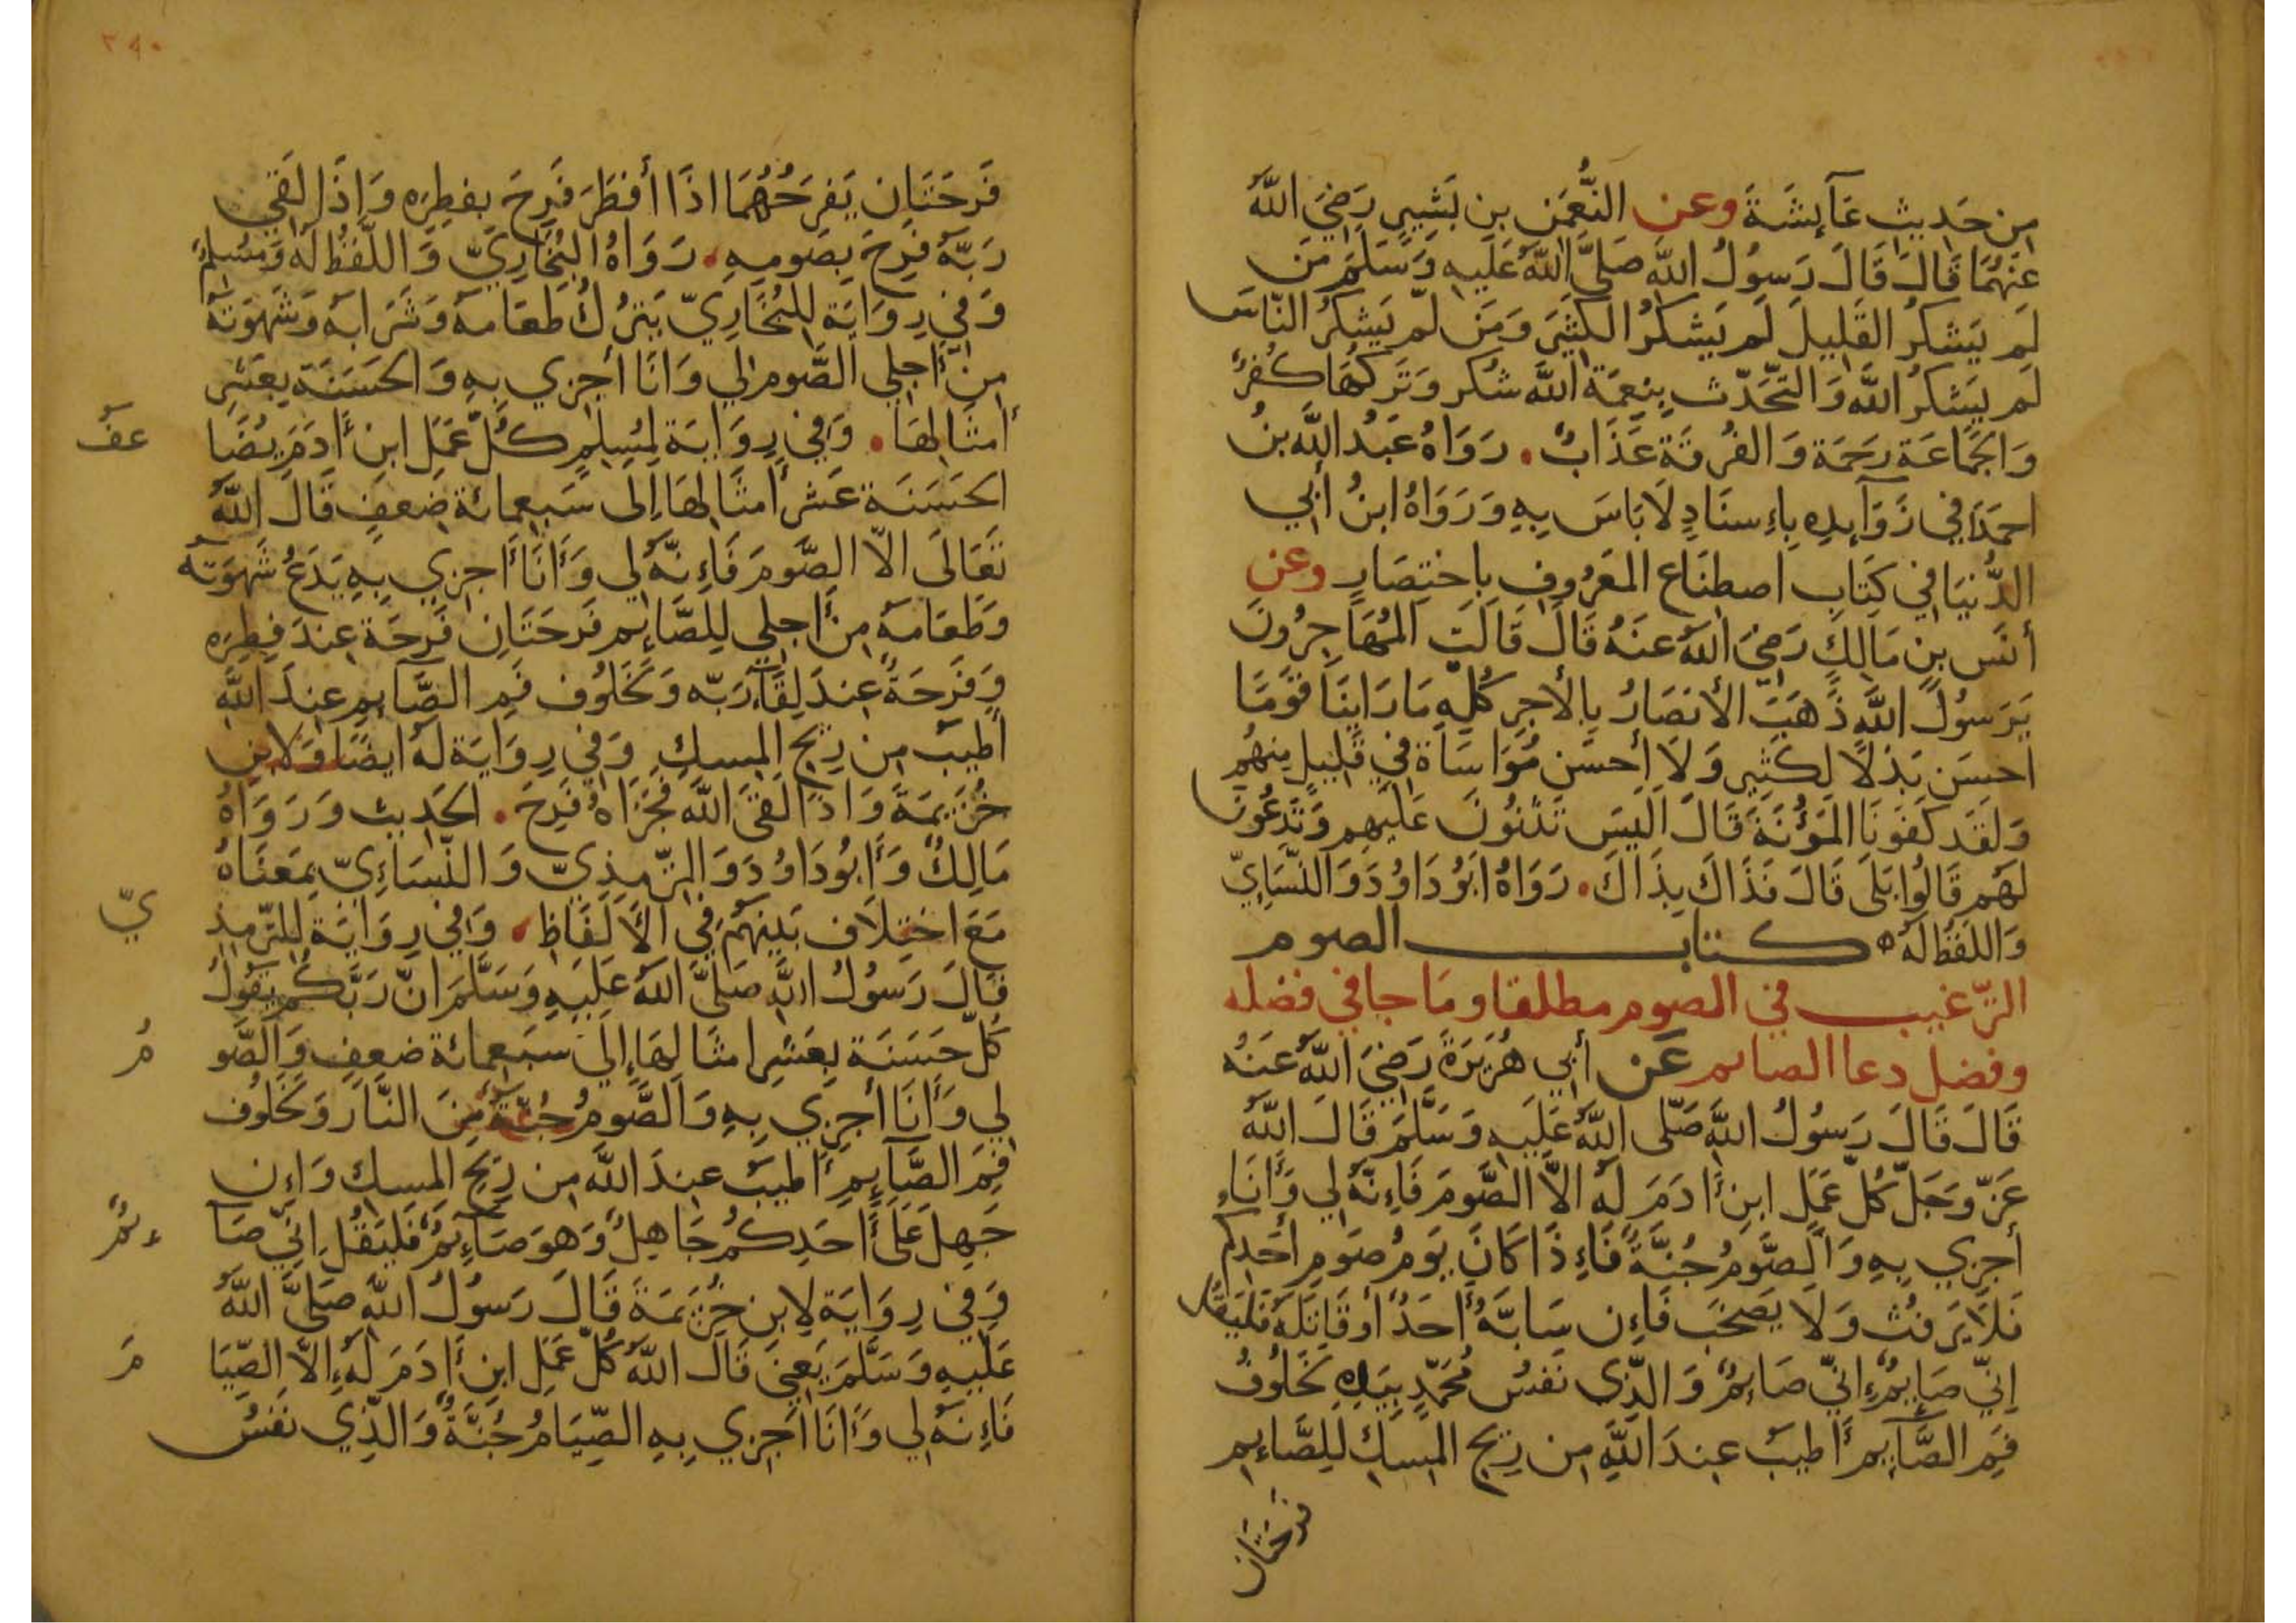 من حديث عآئشة وعن النعمن بن بشير رضي الله
عنهما قال قال رسول الله صلى الله عليه وسلم من
لم يشكر القليل لم يشكر الكثير ومن لم يشكر الناس
لم يشكر الله والتحدث بنعمة الله شكر وتركها كفر
والجماعة رحمة والفرقة عذاب . رواه عبد الله بن
احمد في زوآيده بإسناد لا باس به ورواه ابن أبي
الدنيا في كتاب اصطناع المعروف باختصار وعن
أنس بن مالك رضي الله عنه قال قالت المهاجرون
يرسول الله ذهب الأنصار بالأجر كله ما راينا قوما
احسن بذلا لكثير ولا أحسن مواساة في قليل منهم
ولقد كفونا المؤنة قال اليس تثنون عليهم وتدعون
لهم قالوا بلى قال فذاك بذاك . رواه ابو داود والنسايي
واللفظ له ه كتاب الصوم
الترغيب في الصوم مطلقا وما جا في فضله
وفضل دعا الصايم عن أبي هريرة رضي الله عنه
قال قال رسول الله صلى الله عليه وسلم قال الله
عز وجل كل عمل ابن ءادم له الا الصوم فإنه لي وأنا
أجزي به والصوم جنة فإذا كان يوم صوم أحدكم
فلا يرفث ولا يصخب فإن سابه أحد أو قاتله فليقل
إني صايم إني صايم والذي نفس محمد بيده لخلوف
فم الصآيم أطيب عند الله من ريح المسك للصايم
فرحتان
٢٩٠
فرحتان يفرحهما اذا أفطر فرح بفطره وإذا لقي
ربه فرح بصومه . رواه البخاري واللفظ له ومسلم
وفي رواية للبخاري يترك طعامه وشرابه وشهوته
من أجلي الصوم لي وانا أجزي به والحسنة بعشر
أمثالها . وفي رواية لمسلم كل عمل ابن ءادم يضا عف
الحسنة عشر أمثالها إلى سبعمائة ضعف قال الله
تعالى الا الصوم فإنه لي وأنا أجزي به يدع شهوته
وطعامه من أجلي للصائم فرحتان فرحة عند فطره
وفرحة عند لقآء ربه ولخلوف فم الصآيم عند الله
اطيب من ريح المسك وفي رواية له ايضا ولابن
خزيمة واذا لقي الله فجزاه فرح . الحديث ورواه
مالك وأبو داود والترمذي والنسائي بمعناه
مع اختلاف بينهم في الألفاظ . وفي رواية للترمذ ي
قال رسول الله صلى الله عليه وسلم ان ربكم يقول
كل حسنة بعشر امثالها إلى سبعمائة ضعف والصو م
لي وأنا أجزي به والصوم جنة من النار ولخلوف
فم الصآيم أطيب عند الله من ريح المسك وإن
جهل على أحدكم جاهل وهو صآئم فليقل إني صآ ئم
وفي رواية لابن خزيمة قال رسول الله صلى الله
عليه وسلم يعني قال الله كل عمل ابن ءادم له إلا الصيا م
فإنه لي وأنا أجزي به الصيام جنة والذي نفس